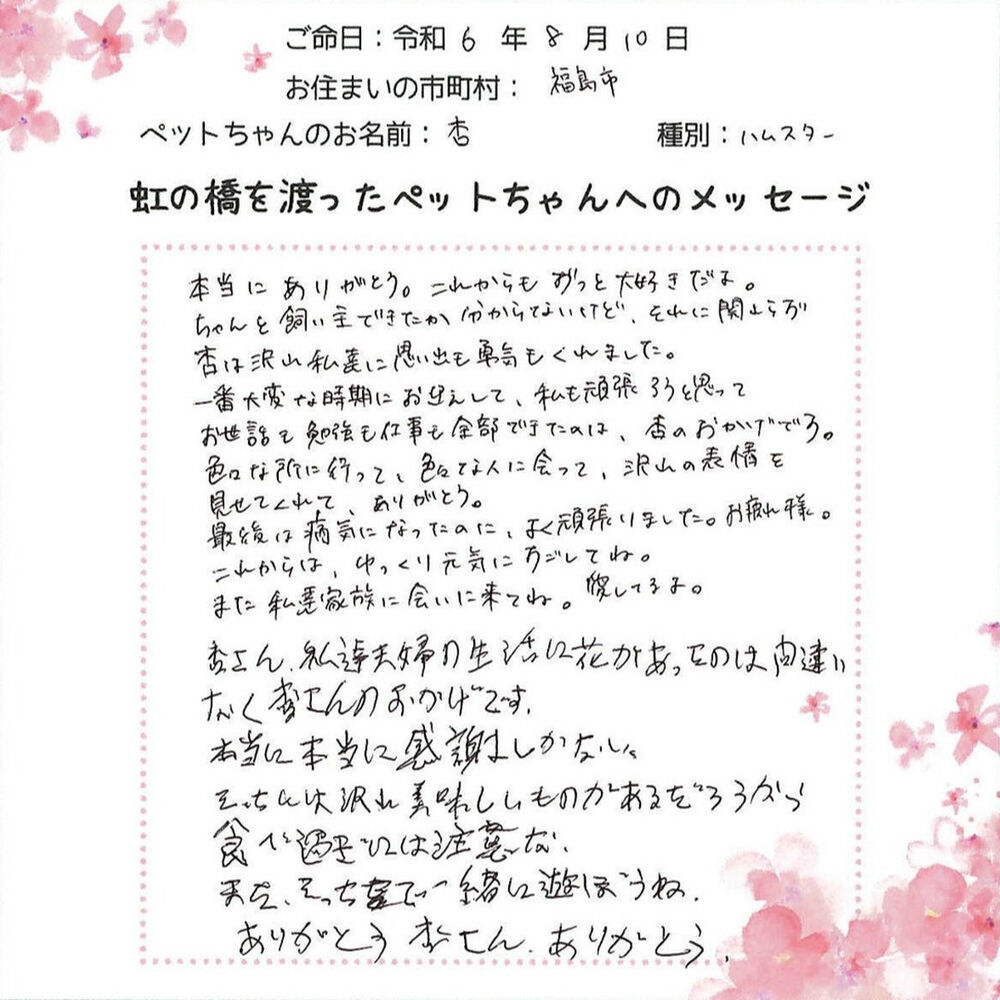 ご命日：令和 6 年 8 月 10 日
お住まいの市町村： 福島市
ペットちゃんのお名前：杏 種別：ハムスター
虹の橋を渡ったペットちゃんへのメッセージ
本当に ありがとう。これからも ずっと大好きだよ。
ちゃんと飼い主できたか 分からないけど、それに関わらず
杏は沢山私達に思い出も勇気もくれました。
一番大変な時期にお迎えして、私も頑張ろうと思って
お世話も勉強も仕事も全部できたのは、杏のおかげでろ。
色々な所に行って、色々な人に会って、沢山の表情を
見せてくれて、ありがとう。
最後は病気になったのに、よく頑張りました。お疲れ様。
これからは、ゆっくり元気にすごしてね。
また私達家族に会いに来てね。愛してるよ。
杏さん、私達夫婦の生活に花があったのは間違い
なく杏さんのおかげです。
本当に本当に感謝しかない。
そっちには沢山美味しいものがあるだろうから
食べ過ぎには注意な。
また、そっちで一緒に遊ぼうね。
ありがとう 杏さん、ありがとう、